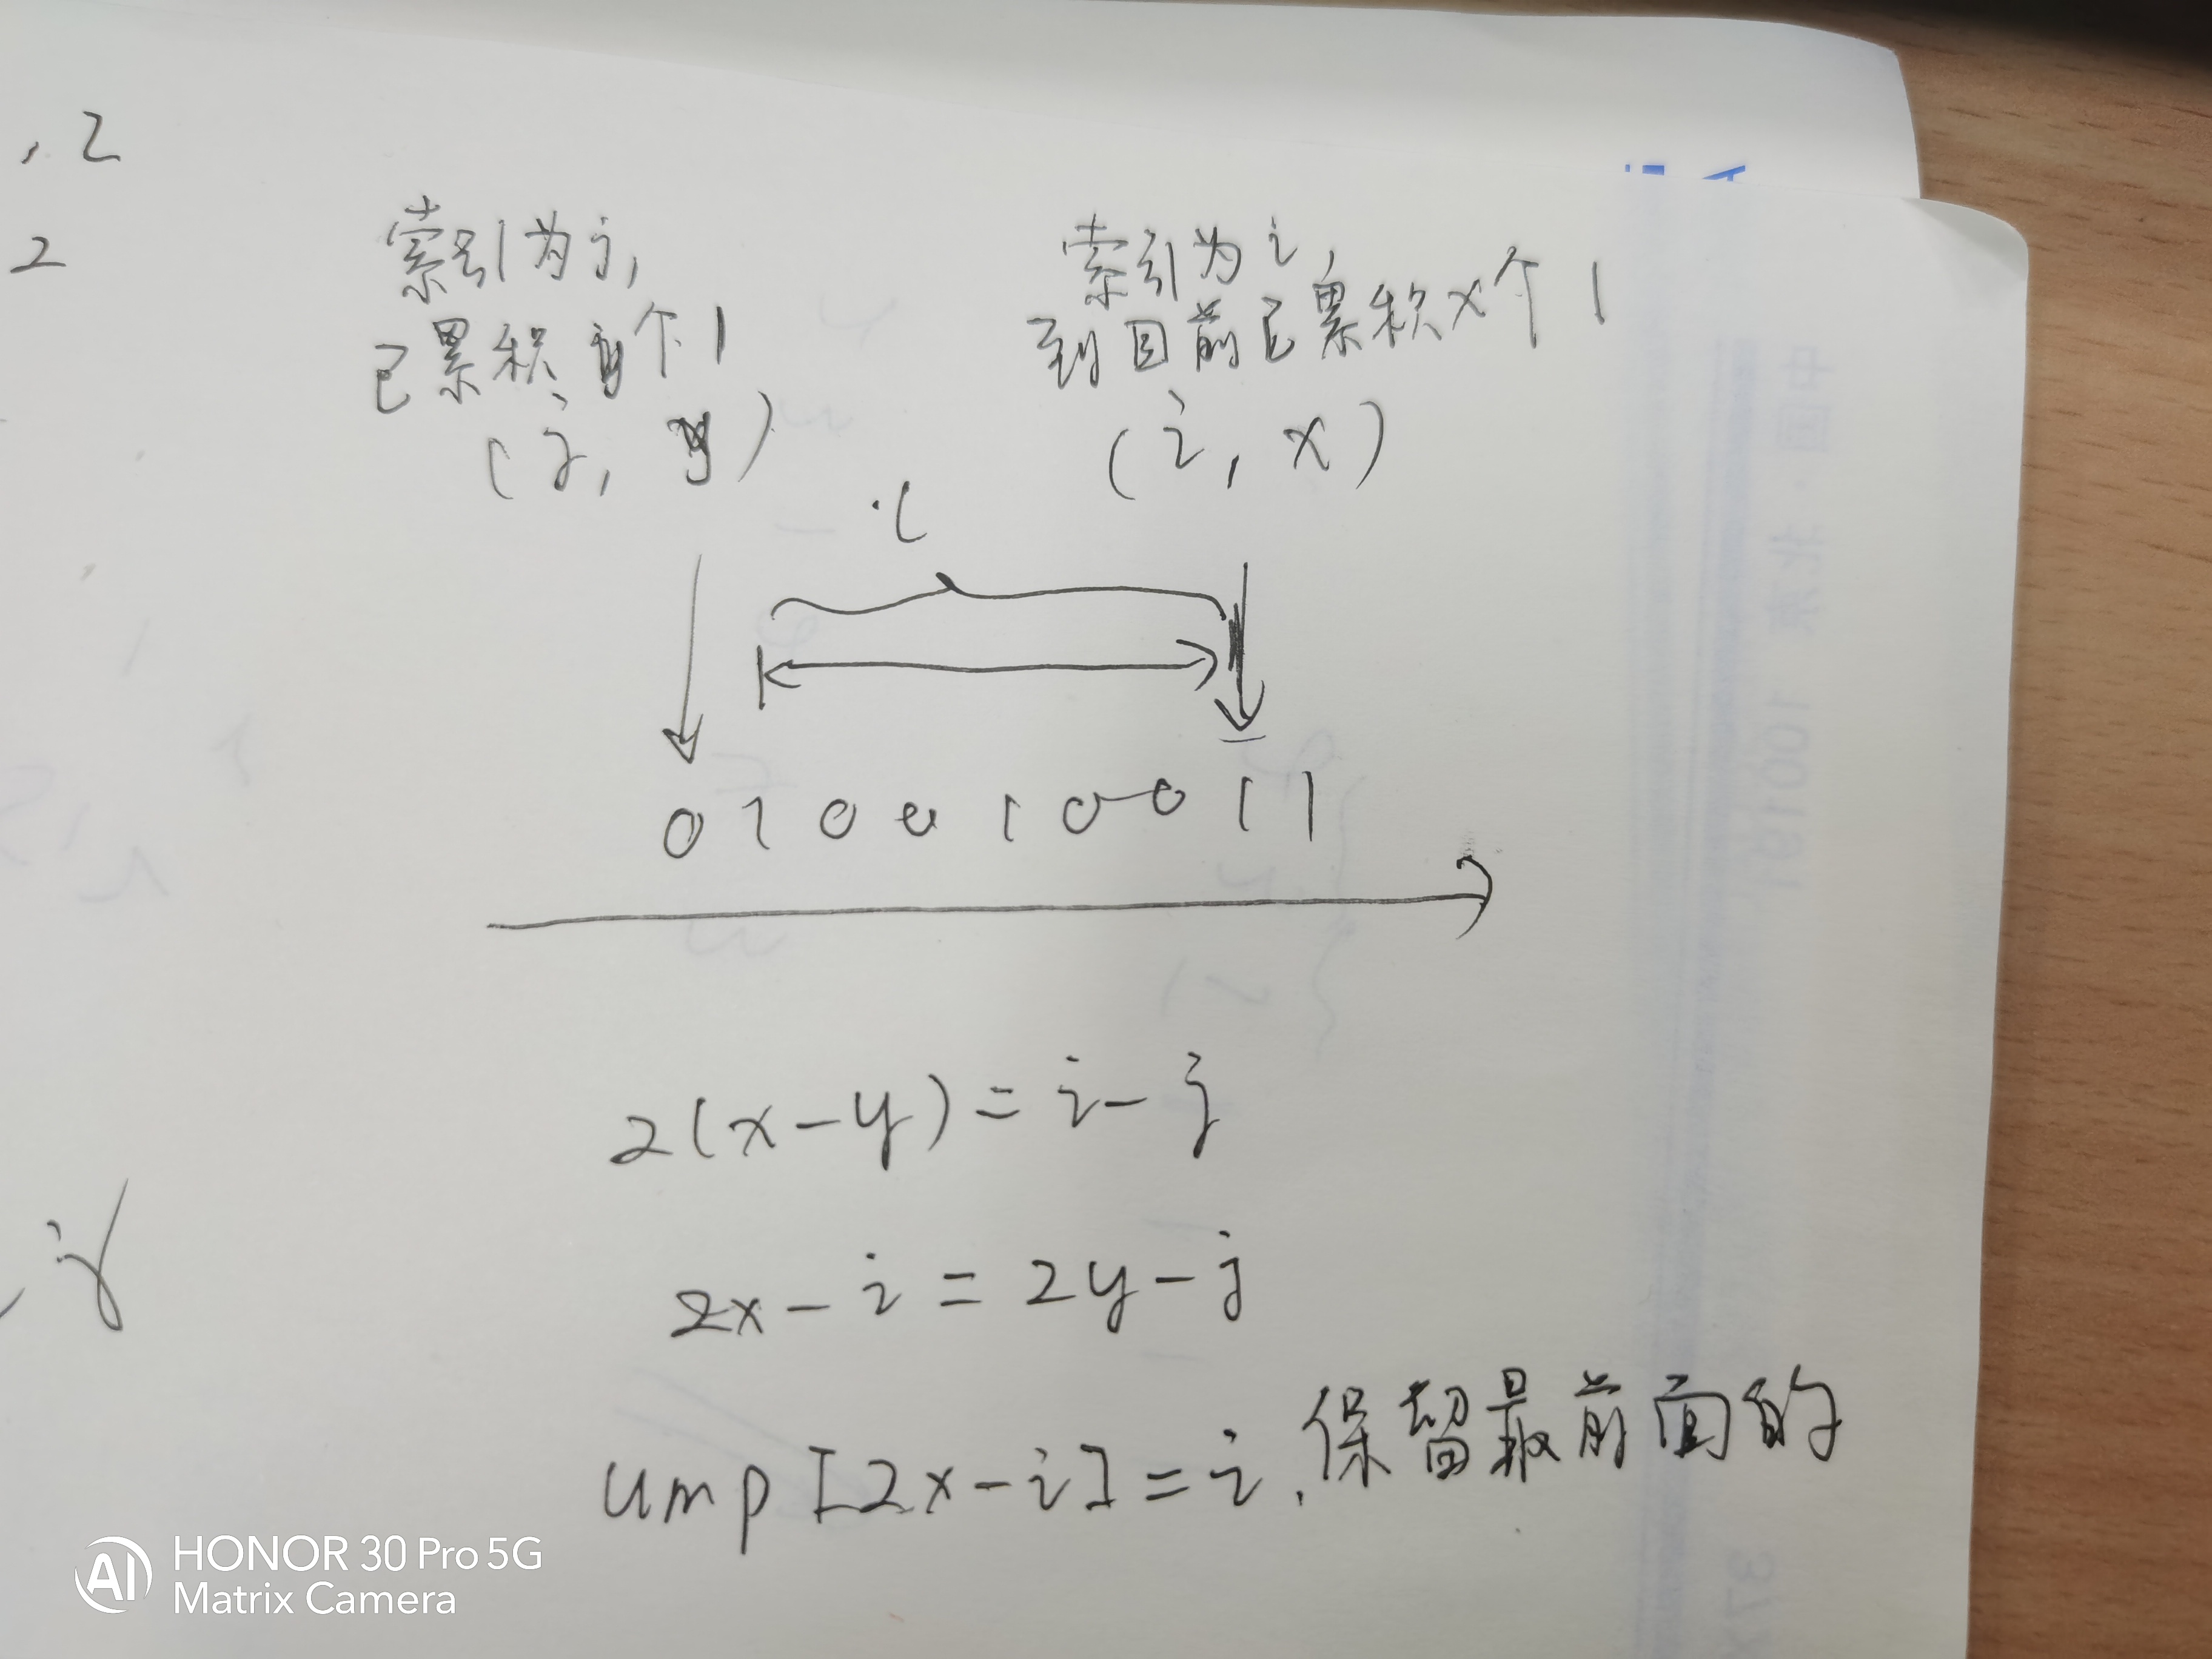 , 2
2
索引为j,
已累积y个1
(j, y)
索引为i,
到目前已累积x个1
(i, x)
0 1 0 0 1 0 0 1 1
2(x-y)=i-j
2x-i=2y-j
ump[2x-i]=i,保留最前面的
中国·北京 100191
AI HONOR 30 Pro 5G
Matrix Camera